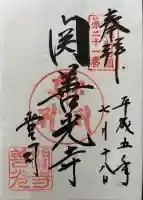 奉拝
第二十一番
平成五年
七月十八日
関善光寺